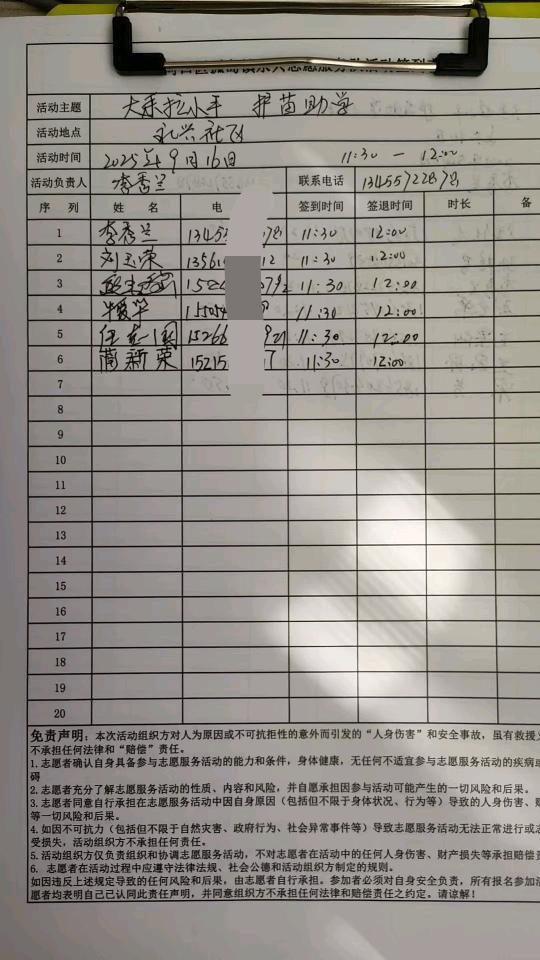 活动主题 大手拉小手 护苗助学
活动地点 永兴社区
活动时间 2025年9月16日 11:30 — 12:00
活动负责人 李秀兰 联系电话
序 列 姓 名 电 签到时间 签退时间 时长 备
1 李秀兰 11:30 12:00
2 刘玉荣 11:30 12:00
3 11:30 12:00
4 11:30 12:00
5 11:30 12:00
6 蔺新荣 11:30 12:00
7
8
9
10
11
12
13
14
15
16
17
18
19
20
免责声明：本次活动组织方对人为原因或不可抗拒性的意外而引发的“人身伤害”和安全事故，虽有救援义
不承担任何法律和“赔偿”责任。
1.志愿者确认自身具备参与志愿服务活动的能力和条件，身体健康，无任何不适宜参与志愿服务活动的疾病或
碍
2.志愿者充分了解志愿服务活动的性质、内容和风险，并自愿承担因参与活动可能产生的一切风险和后果。
3.志愿者同意自行承担在志愿服务活动中因自身原因（包括但不限于身体状况、行为等）导致的人身伤害、财
等一切风险和后果。
4.如因不可抗力（包括但不限于自然灾害、政府行为、社会异常事件等）导致志愿服务活动无法正常进行或志
受损失，活动组织方不承担任何责任。
5.活动组织方仅负责组织和协调志愿服务活动，不对志愿者在活动中的任何人身伤害、财产损失等承担赔偿责
6. 志愿者在活动过程中应遵守法律法规、社会公德和活动组织方制定的规则。
如因违反上述规定导致的任何风险和后果，由志愿者自行承担。参加者必须对自身安全负责，所有报名参加活
愿者均表明自己已认同此责任声明，并同意组织方不承担任何法律和赔偿责任之约定。请谅解！